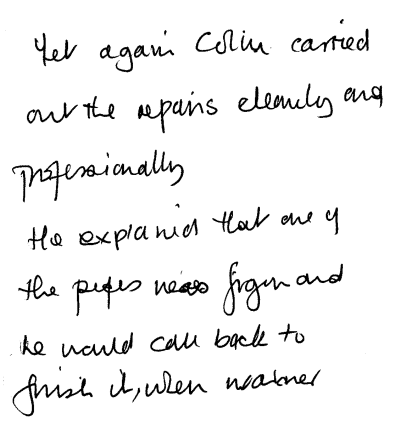 Yet again Colin carried
out the repairs cleanly and
professionally
He explained that one of
the pipes was frozen and
he would call back to
finish it, when warmer